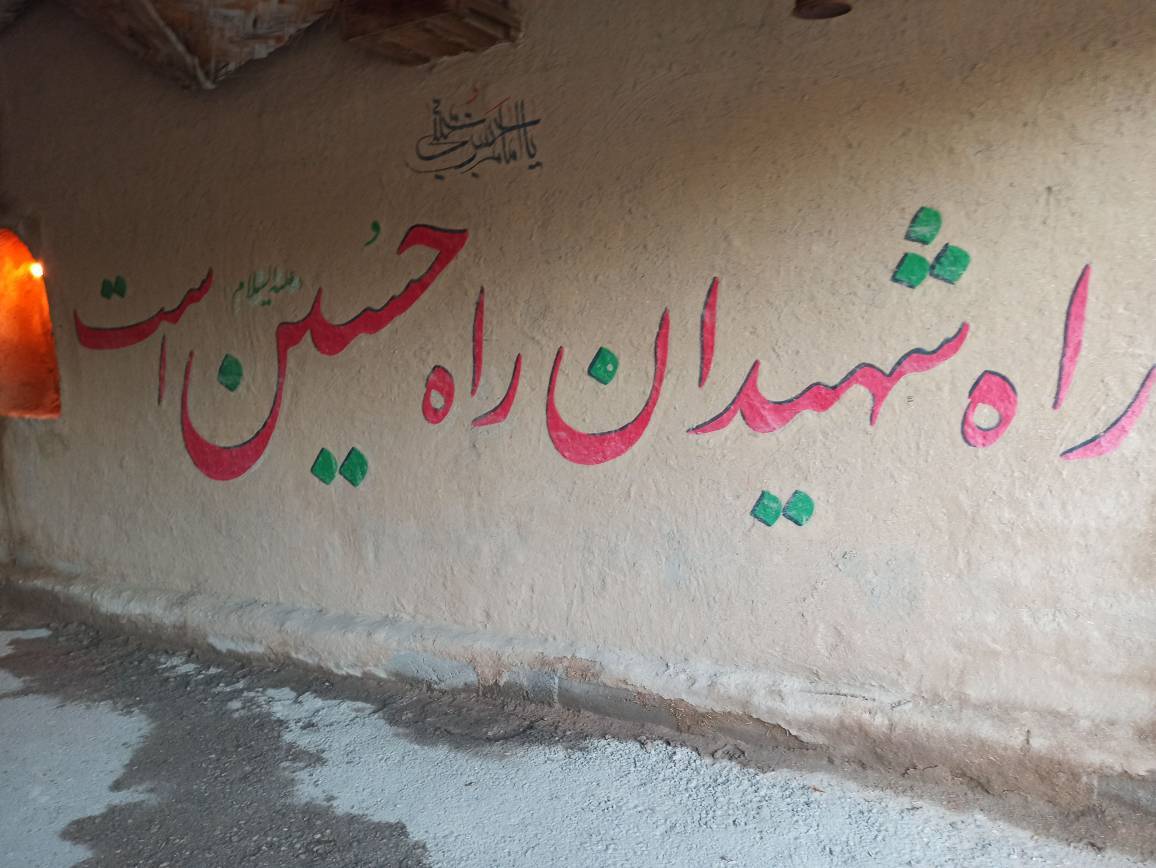 یا امام حسن مجتبی
راه شهیدان راه حسین علیه السلام است